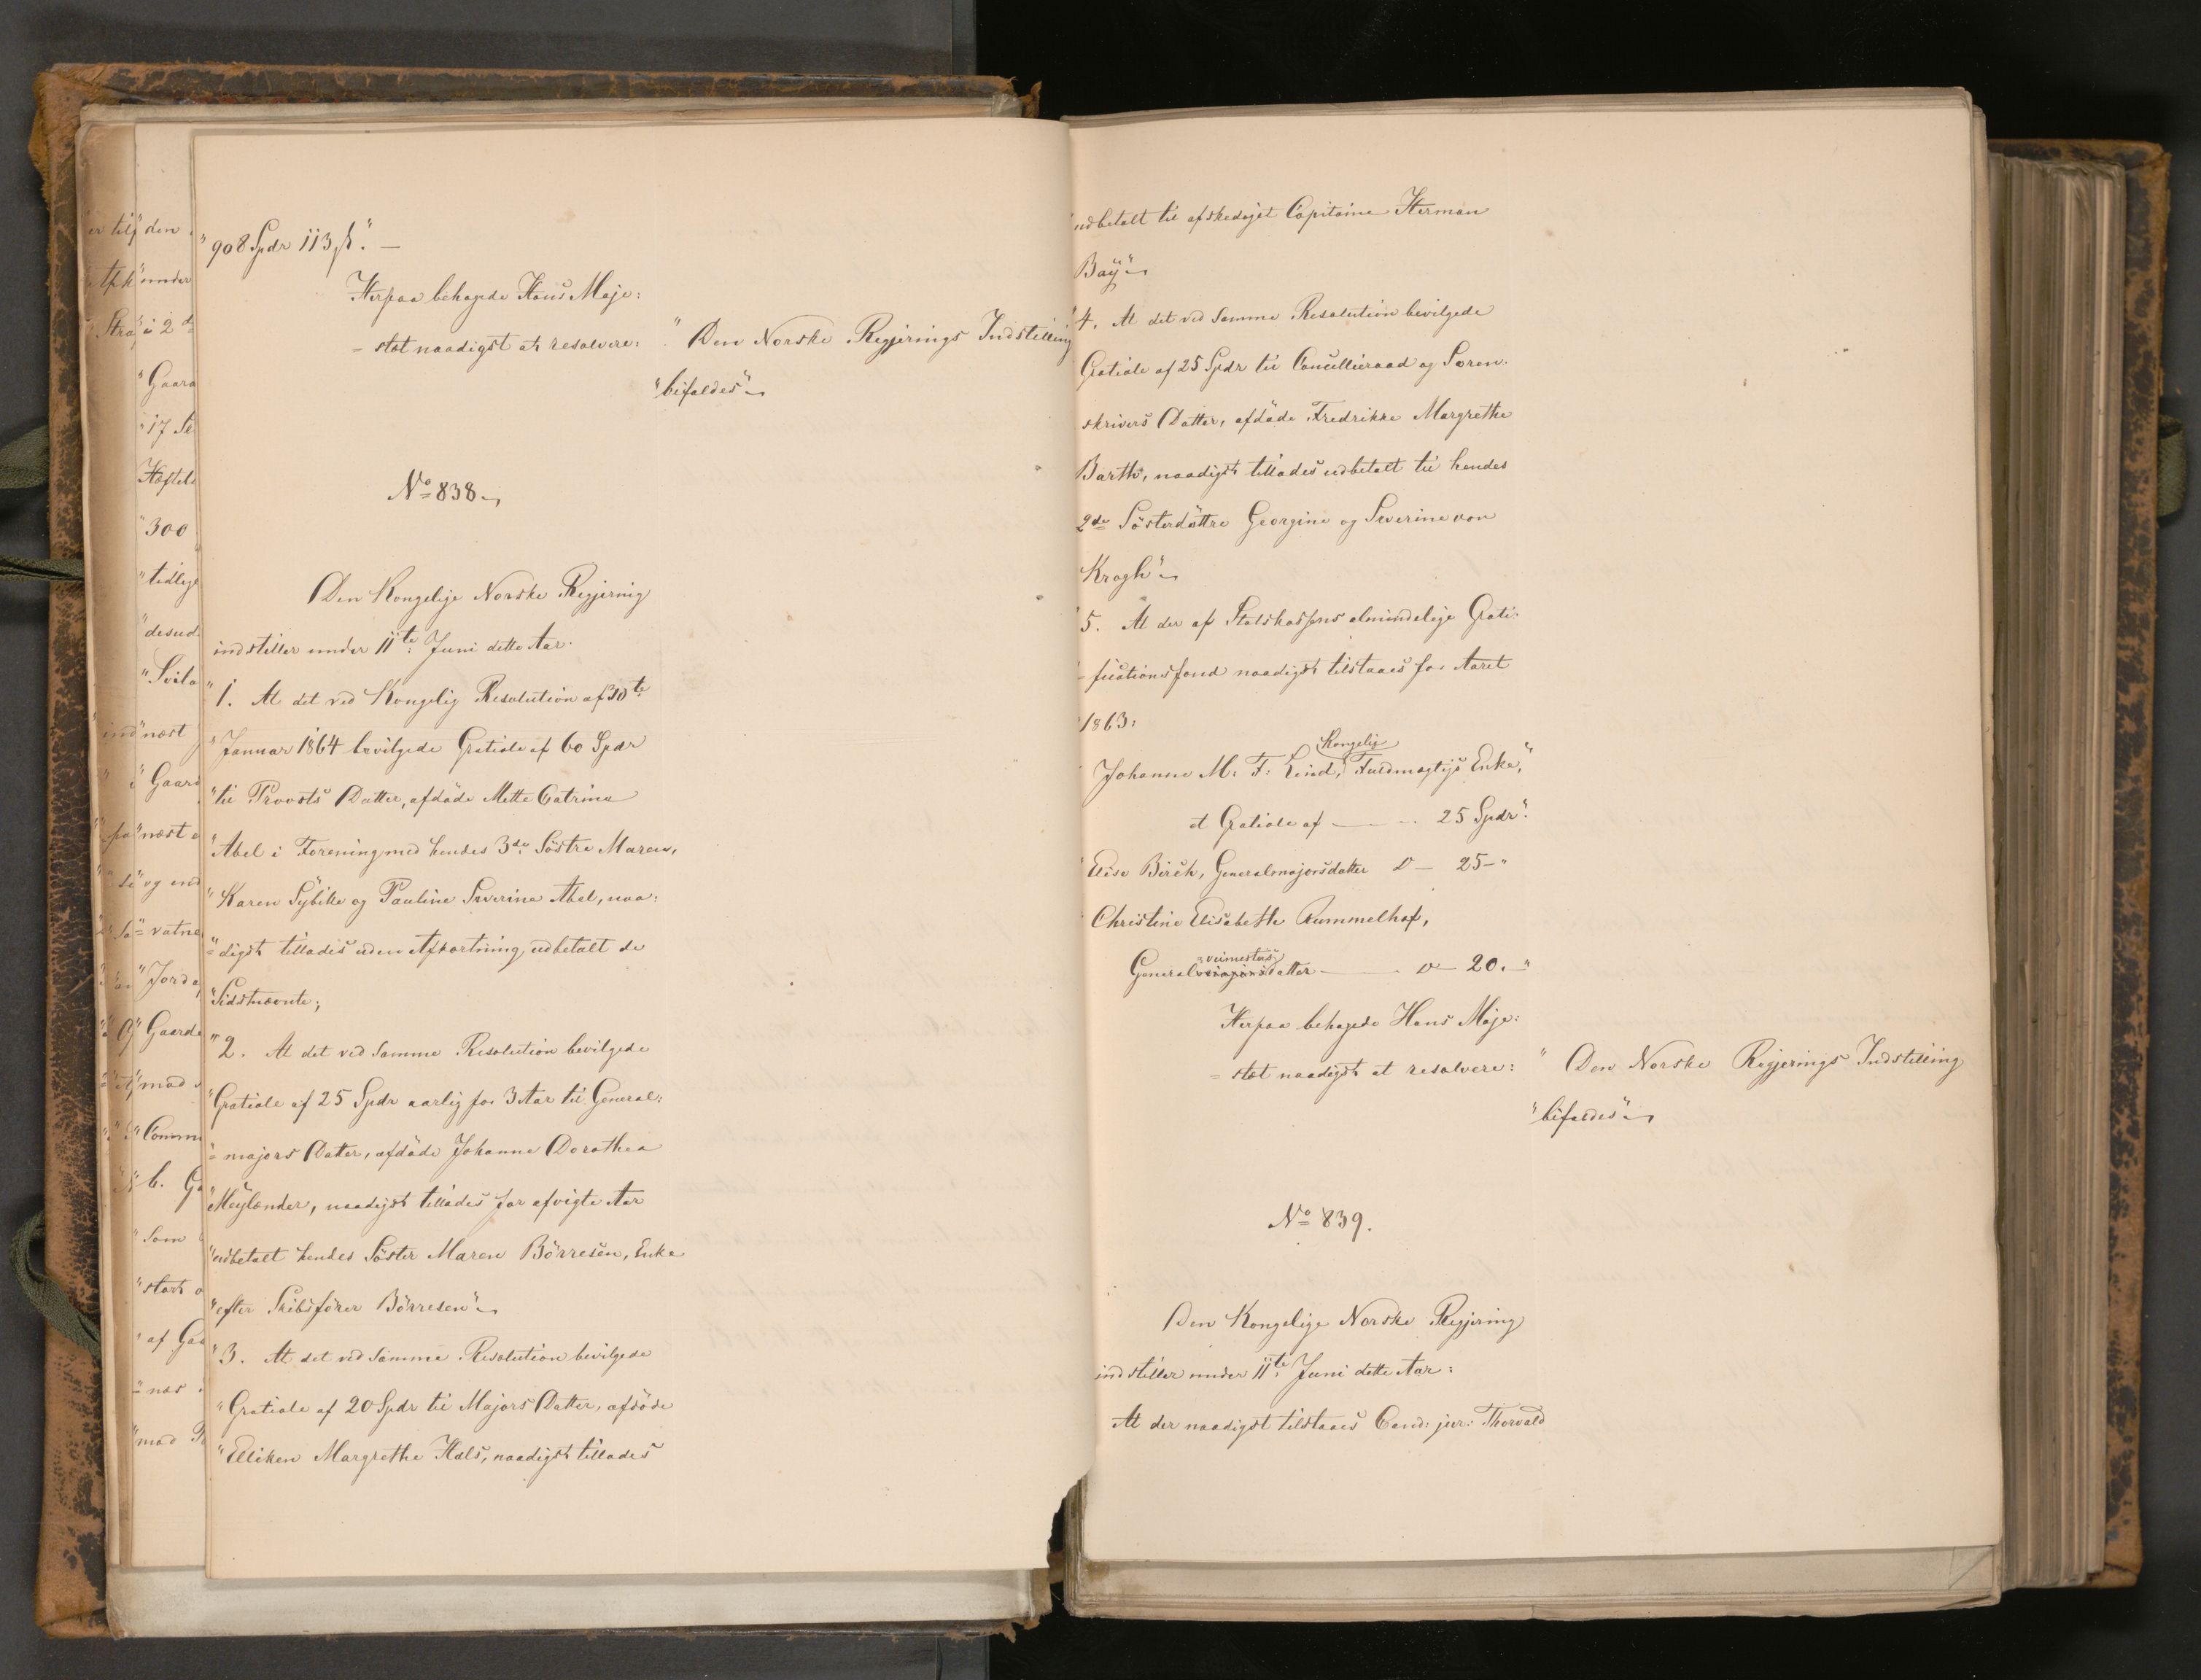 "908 Spdr 113 ß". —
Herpaa behagede Hans Maje:
= stæt naadigst at resolvere:
" Den Norske Regjerings Indstilling
"bifaldes"
No 838
Den Kongelige Norske Regjering
indstiller under 11te Juni dette Aar.
"1. At det ved Kongelig Resolution af 30te
"Januar 1864 bevilgede Gratiale af 60 Spdr
"til Provsts Datter, afdöde Mette Catrina
"Abel i Forening med hendes 3de Söstre Maren,
"Karen Sÿbille og Pauline Severine Abel, naa:
"= digst tillades uden Afkortning udbetalt de
"Sidstnævnte;
"2. At det ved samme Resolution bevilgede
"Gratiale af 25 Spdr aarlig for 3 Aar til General:
"= majors Datter, afdöde Johanne Dorothea
"Meÿlænder, naadigst tillades for afvigte Aar
"udbetalt hendes Söster Maren Börresen, Enke
"efter Skibsförer Börresen"
"3. At det ved samme Resolution bevilgede
"Gratiale af 20 Spdr til Majors Datter, afdöde
"Elliken Margrethe Hals, naadigst tillades
"udbetalt til afskediget Capitaine Herman
Baÿ"
"4. At det ved samme Resolution bevilgede
Gratiale af 25 Spdr til Cancelliraad og Soren-
skrivers Datter, afdöde Fredrikke Margrethe
Barth, naadigst tillades udbetalt til hendes
2de Sösterdöttre Georgine og Severine von
Krogh"
"5. At der af Statskassens almindelige Grati:
"= ficationsfond naadigst tilstaaes for Aaret
"1863:
Kongelig
Johanne M. F. Lind, Fuldmægtigs Enke,"
et Gratiale af — 25 Spdr".
"Elise Birch, Generalmajorsdatter D — 25 — "
"Christine Elisabethe Rummelhof,
veimesters
Generalmajorsdatter — D — 20. — "
Herpaa behagede Hans Maje:
= stæt naadigst at resolvere:
" Den Norske Regjerings Indstilling
"bifaldes"
No 839.
Den Kongelige Norske Regjering
indstiller under 11te Juni dette Aar:
At der naadigst tilstaaes Cand: jur: Thorvald